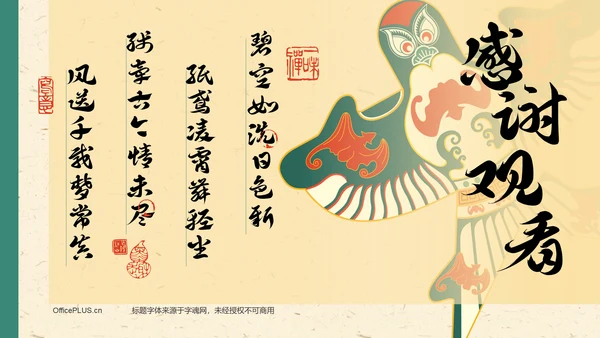 感谢观看
碧空如洗日色新
纸鸢凌霄舞轻尘
线牵六合情未尽
风送千载梦常真
OfficePLUS.cn
标题字体来源于字魂网，未经授权不可商用